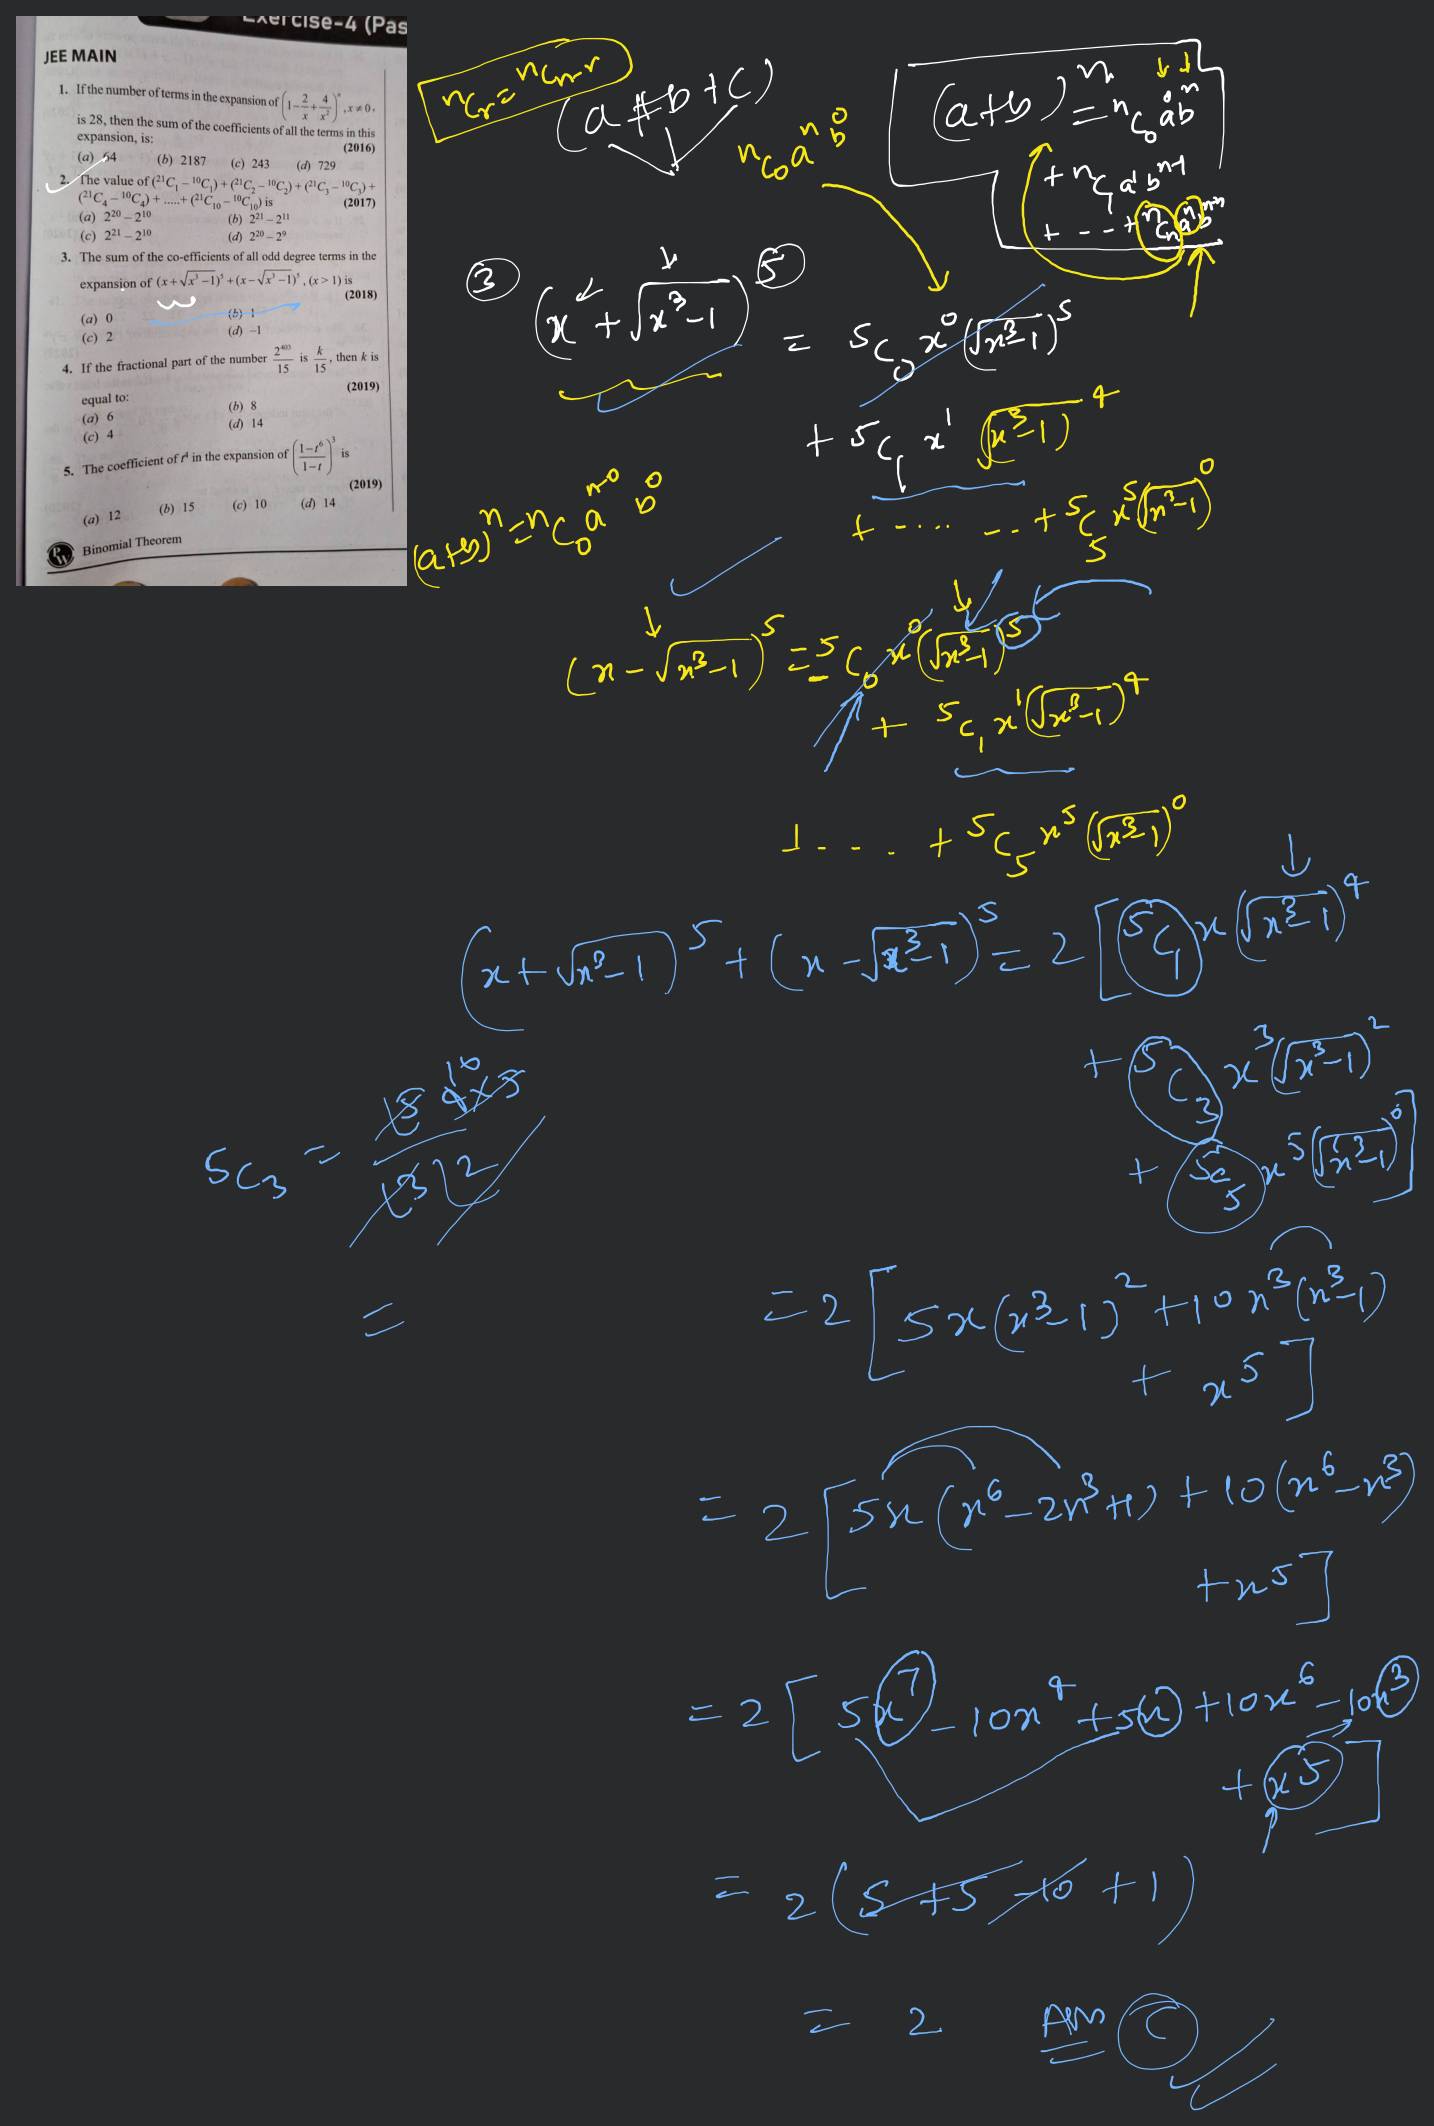 Exercise-4 (Pas
JEE MAIN
1. If the number of terms in the expansion of (1 - 2/x + 4/x²)ⁿ, x ≠ 0,
is 28, then the sum of the coefficients of all the terms in this
expansion, is: (2016)
(a) 64 (b) 2187 (c) 243 (d) 729
2. The value of (²¹C₁ – ¹⁰C₁) + (²¹C₂ – ¹⁰C₂) + (²¹C₃ – ¹⁰C₃) +
(²¹C₄ – ¹⁰C₄) + ..... + (²¹C₁₀ – ¹⁰C₁₀) is (2017)
(a) 2²⁰ – 2¹⁰ (b) 2²¹ – 2¹¹
(c) 2²¹ – 2¹⁰ (d) 2²⁰ – 2⁹
3. The sum of the co-efficients of all odd degree terms in the
expansion of (x + √(x³–1))⁵ + (x – √(x³–1))⁵, (x > 1) is
(2018)
(a) 0 (b) 1
(c) 2 (d) –1
4. If the fractional part of the number 2⁴⁰³/15 is k/15, then k is
equal to: (2019)
(a) 6 (b) 8
(c) 4 (d) 14
5. The coefficient of t⁴ in the expansion of ((1–t⁶)/(1–t))³ is
(2019)
(a) 12 (b) 15 (c) 10 (d) 14
PW Binomial Theorem
nCr = nCn-r
(a + b + c)
nC0 aⁿ b⁰
(a+b)ⁿ = nC0 a⁰bⁿ
+ nC1 a¹ bⁿ⁻¹
+ --- + nCn aⁿ bⁿ⁻ⁿ
③ (x + √(x³-1))⁵ = 5C0 x⁰ (√(x³-1))⁵
+ 5C1 x¹ (√(x³-1))⁴
+ ---- -- + 5C5 x⁵ (√(x³-1))⁰
(a+b)ⁿ = nC0 aⁿ⁻⁰ b⁰
(x - √(x³-1))⁵ = -5C0 x⁰ (√(x³-1))⁵
+ 5C1 x¹ (√(x³-1))⁴
+ - - - + 5C5 x⁵ (√(x³-1))⁰
(x + √(x³-1))⁵ + (x - √(x³-1))⁵ = 2 [ 5C1 x (√(x³-1))⁴
+ 5C3 x³ (√(x³-1))²
+ 5C5 x⁵ (√(x³-1))⁰ ]
5C3 =
=
= 2 [ 5x (x³-1)² + 10x³ (x³-1)
+ x⁵ ]
= 2 [ 5x (x⁶ - 2x³ + 1) + 10 (x⁶ - x³)
+ x⁵ ]
= 2 [ 5x⁷ - 10x⁴ + 5x + 10x⁶ - 10x³
+ x⁵ ]
= 2 (5 + 5 - 10 + 1)
= 2 Ans C